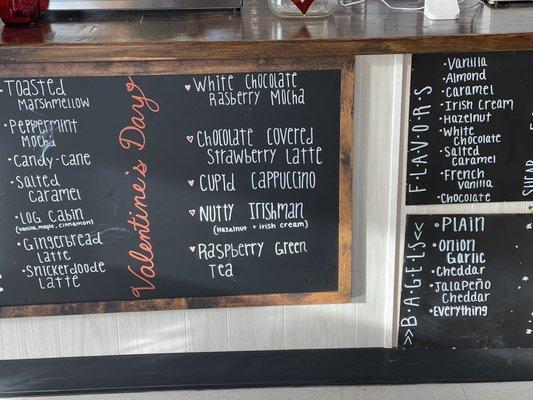 Toasted
Marshmellow
Peppermint
Mocha
Candy-Cane
Salted
Caramel
Log Cabin
(vanilla, maple, cinnamon)
Gingerbread
Latte
Snickerdoodle
Latte
Valentine's Day
White Chocolate
Rasberry Mocha
Chocolate Covered
Strawberry Latte
Cupid Cappuccino
Nutty Irishman
(Hazelnut + irish cream)
Raspberry Green
Tea
FLAVORS
Vanilla
Almond
Caramel
Irish Cream
Hazelnut
White
Chocolate
Salted
Caramel
French
Vanilla
Chocolate
SUGAR
>>BAGELS<<
Plain
Onion
Garlic
Cheddar
Jalapeño
Cheddar
Everything